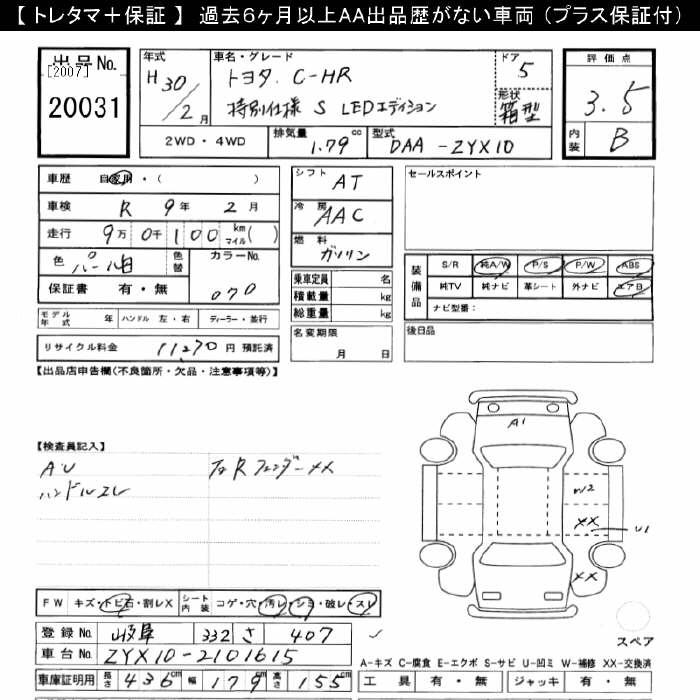 【トレタマ＋保証】 過去6ヶ月以上AA出品歴がない車両（プラス保証付）
出品No.
[2007]
20031
年式
H30/2月
車名・グレード
トヨタ C-HR
特別仕様 S LEDエディション
ドア 5
形状 箱型
2WD・4WD 排気量 1.79cc 型式 DAA-ZYX10
評価点
3.5
内装 B
車歴 自家用・( )
車検 R 9年 2月
走行 9万0千100 km マイル( )
色 パール白 色替 カラーNo. 070
保証書 有・無
モデル年式 年 ハンドル 左・右 ディーラー・並行
リサイクル料金 11,270円 預託済
シフト AT
冷房 AAC
燃料 ガソリン
乗車定員 名
積載量 kg
総重量 kg
名変期限
月 日
セールスポイント
装備品
S/R 純A/W P/S P/W ABS
純TV 純ナビ 革シート 外ナビ エアB
ナビ型番：
後日品
【出品店申告欄(不良箇所・欠品・注意事項等)】
【検査員記入】
AU
ハンドルスレ
R フェンダーXX
A1
W2
XX
U1
XX
スペア
FW キズ・トビ石・割レX シート内装 コゲ・穴・汚レ・シミ・破レ・スレ
登録No. 岐阜 332 さ 407
車台No. ZYX10-2101615
車庫証明用 長さ 436cm 幅 179cm 高さ 155cm
A-キズ C-腐食 E-エクボ S-サビ U-凹ミ W-補修 XX-交換済
工具 有・無 ジャッキ 有・無